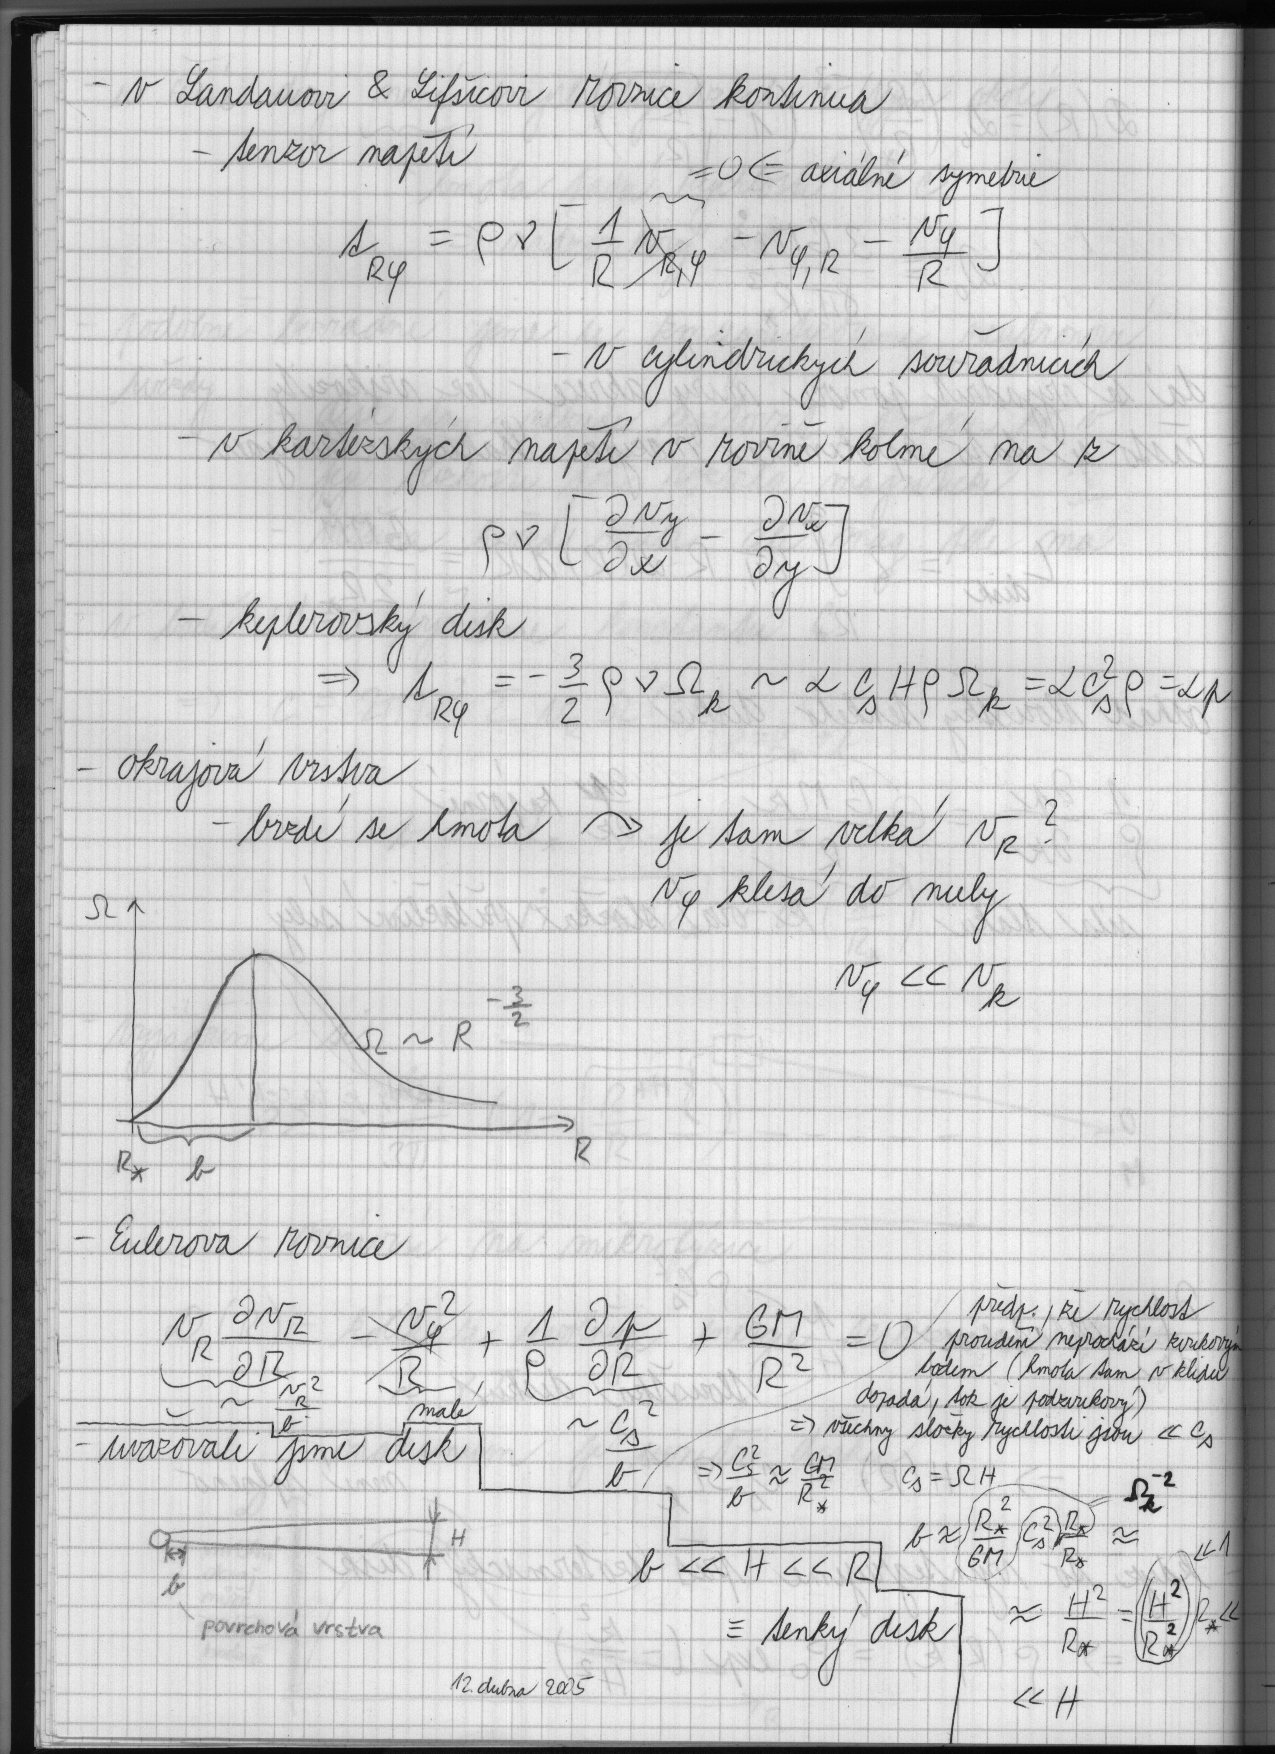 - v Landauovi & Lifšicovi rovnice kontinua
- tenzor napětí
= 0 ⇐ axiálně symetrie
t_Rφ = ρν[ 1/R v_R,φ - v_φ,R - v_φ/R ]
- v cylindrických souřadnicích
- v kartézských napětí v rovině kolmé na z
ρν[ ∂v_y/∂x - ∂v_x/∂y ]
- keplerovský disk
⇒ t_Rφ = -3/2 ρνΩ_k ~ α c_s H ρ Ω_k = α c_s² ρ = α p
- okrajová vrstva
- brzdí se hmota ↝ je tam velká v_R ?
v_φ klesá do nuly
v_φ << v_k
Ω
Ω ~ R^-3/2
R_* b R
- Eulerova rovnice
v_R ∂v_R/∂R - v_φ²/R + 1/ρ ∂p/∂R + GM/R² = 0
~ v_R²/b
malé
~ c_s²/b
předp., že rychlost
proudění neprochází zvukovým
bodem (hmota tam v klidu
dopadá, tok je podzvukový)
⇒ všechny složky rychlosti jsou << c_s
⇒ c_s²/b ≈ GM/R_*² c_s = ΩH
b ≈ R_*²/GM c_s² R_*/R_* ≈
Ω_k^-2
≈ H²/R_* = (H²/R_*²) R_* <<
<< 1
<< H
- uvažovali jsme disk
H
b
povrchová vrstva
b << H << R
≡ tenký disk
12. dubna 2005